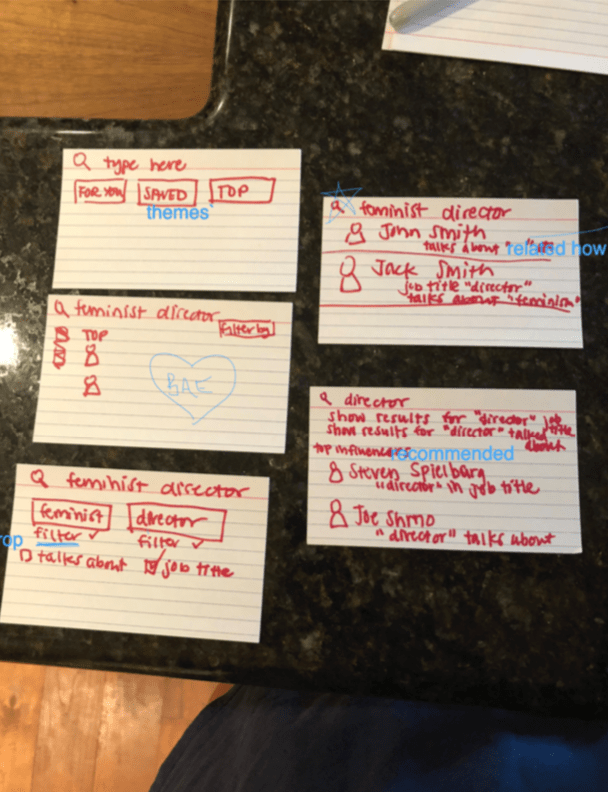 type here
FOR YOU SAVED TOP
themes
feminist director
filter by
TOP
BAE
feminist director
feminist director
filter ✓ filter ✓
rop
talks about job title
feminist director
John Smith
talks about
related how
Jack Smith
job title "director"
talks about "feminism"
director
show results for "director" job title
show results for "director" talked about
top influencers
recommended
Steven Spielbarg
"director" in job title
Joe Shmo
"director" talks about